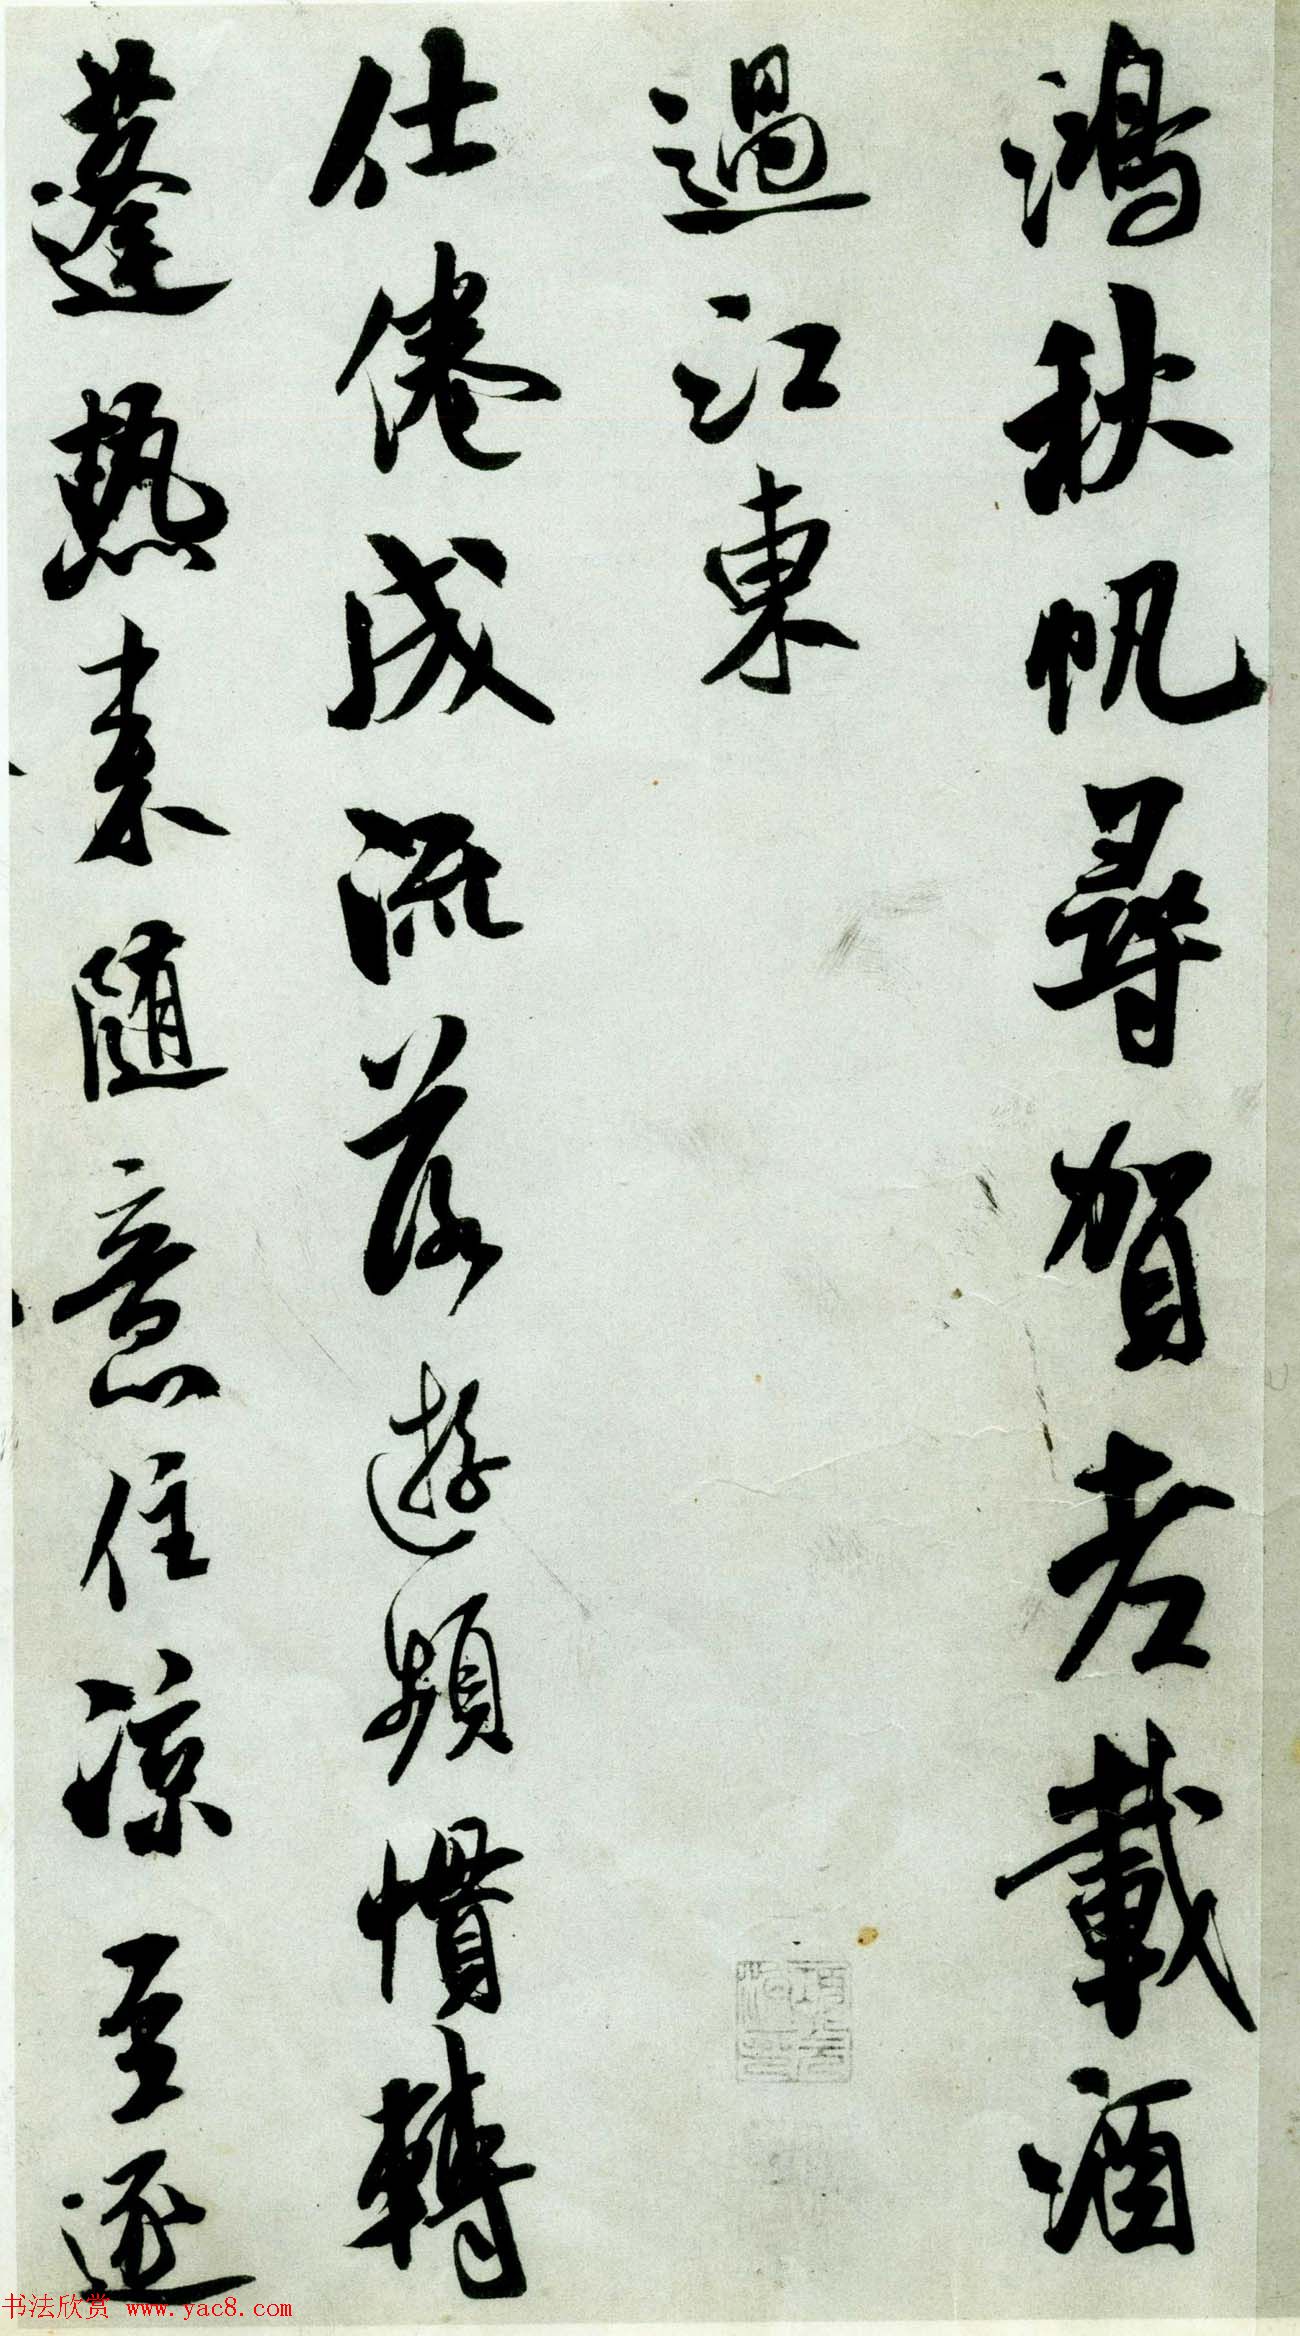 鴻秋帆尋賀老載酒
過江東
仕倦成流落遊頻慣轉
蓬熱来隨意住涼至逐
书法欣赏 www.yac8.com